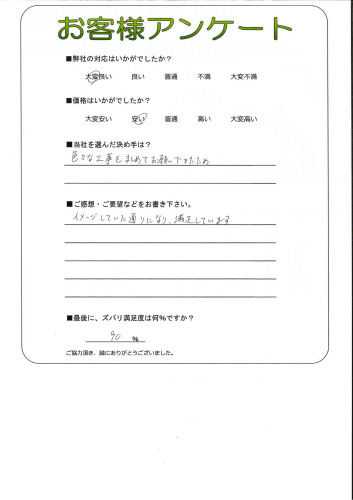 お客様アンケート
■弊社の対応はいかがでしたか？
大変良い 良い 普通 不満 大変不満
■価格はいかがでしたか？
大変安い 安い 普通 高い 大変高い
■当社を選んだ決め手は？
色々な工事をまとめてお願いできたため
■ご感想・ご要望などをお書き下さい。
イメージしていた通りになり、満足しています
■最後に、ズバリ満足度は何%ですか？
90 %
ご協力頂き、誠にありがとうございました。